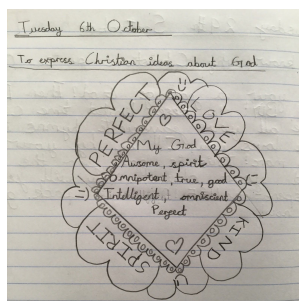 Tuesday 6th October
To express Christian ideas about God
PERFECT
LOVE
My God
Awsome, spirit
Omnipotent, true, good
Intelligent, omniscient
Perfect
SPIRIT
KIND